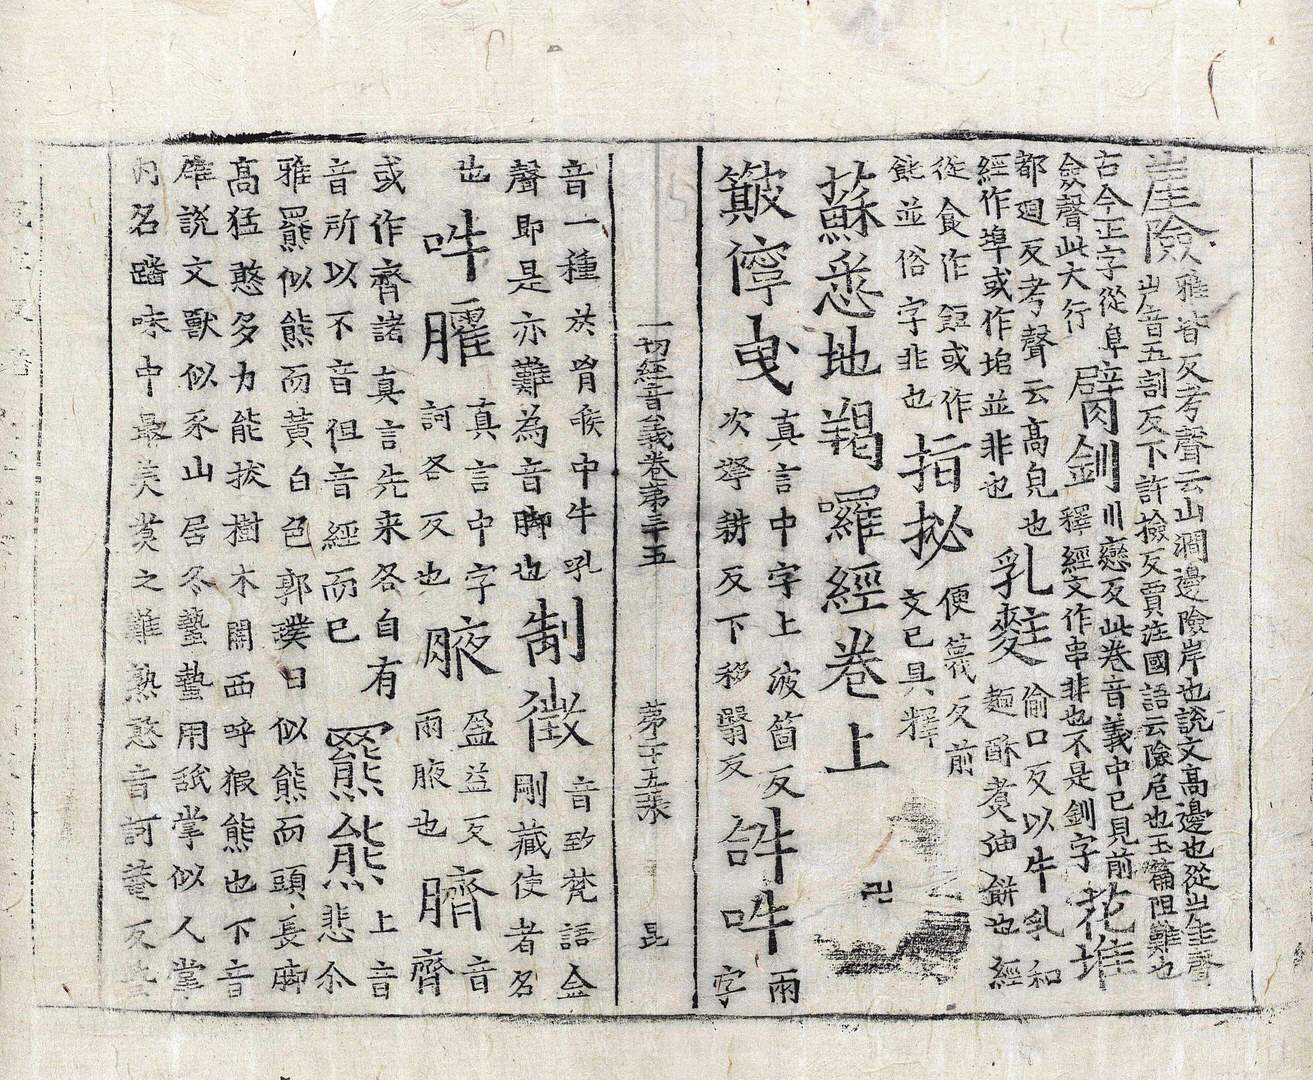 崖險
雅皆反考聲云山澗邊險岸也說文高邊也從屵圭聲
屵音五割反下許撿反賈注國語云險危也玉篇阻難也
古今正字從阜
僉聲此大行
臂釧
川戀反此卷音義中已見前
釋經文作串非也不是釧字
花堆
都迴反考聲云高皃也
經作埠或作塠並非也
乳麨
麪酥煑油餅也經
從食作䬧或作
飥並俗字非也
偷口反以牛乳和
指拯
便篾反前
文已具釋
蘇悉地羯囉經卷上
卍
簸㝑曳
真言中字上波箇反
次拏耕反下移翳反
𤙖吽
兩
字
一切經音義卷第三十五
第十五張
昆
音一種於胷喉中牛吼
聲即是亦難為音脚也
制徵
音致梵語金
剛藏使者名
也
吽㬦
真言中字
訶各反也
腋
盈益反
兩腋也
臍
音
齊
或作齊諸真言先来各自有
音所以不音但音經而已
羆熊
上音
悲尒
雅羆似熊而黃白色郭璞曰似熊而頭長脚
高猛憨多力能拔樹木關西呼猳熊也下音
雄說文獸似豕山居冬蟄蟄用䑛掌似人掌
內名蹯味中最美煑之難熟憨音訶